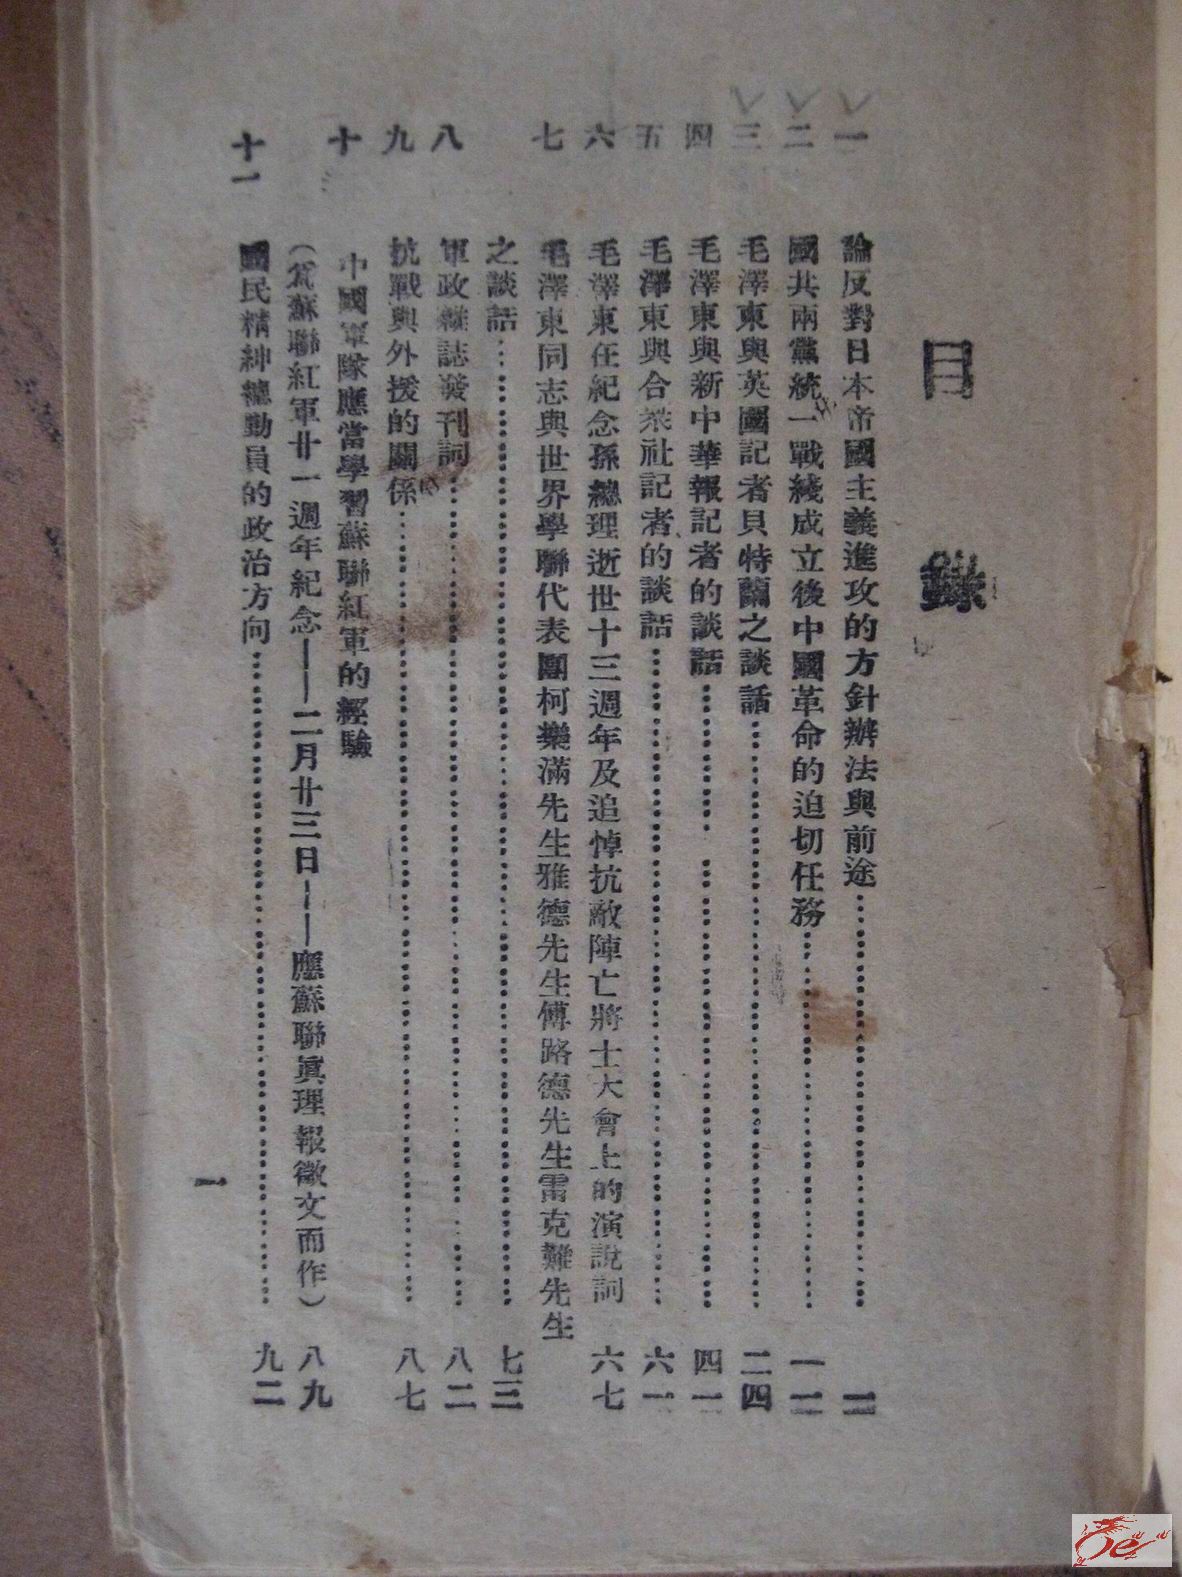 目錄
一 論反對日本帝國主義進攻的方針辦法與前途……………
二 國共兩黨統一戰綫成立後中國革命的迫切任務……………一二
三 毛澤東與英國記者貝特蘭之談話……………二四
四 毛澤東與新中華報記者的談話……………四一
五 毛澤東與合衆社記者的談話……………六一
六 毛澤東在紀念孫總理逝世十三週年及追悼抗敵陣亡將士大會上的演說詞 六七
七 毛澤東同志與世界學聯代表團柯樂滿先生雅德先生傅路德先生雷克難先生
之談話……………七三
八 軍政雜誌發刊詞……………八二
九 抗戰與外援的關係……………八七
十 中國軍隊應當學習蘇聯紅軍的經驗
(爲蘇聯紅軍廿一週年紀念——二月廿三日——應蘇聯眞理報徵文而作) 八九
十一 國民精神總動員的政治方向……………九二
一